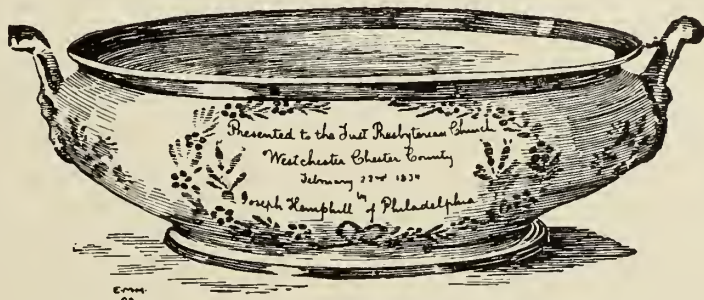 Presented to the First Presbyterian Church
Westchester Chester County
February 22nd 1834
by
Joseph Hemphill of Philadelphia
E.M.H.